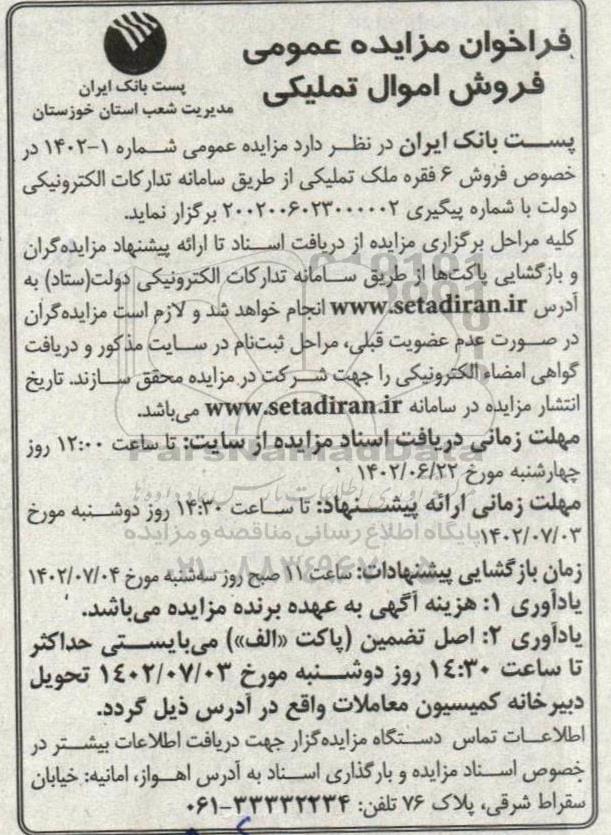 فراخوان مزایده عمومی
فروش اموال تملیکی
پست بانک ایران
مدیریت شعب استان خوزستان
پست بانک ایران در نظر دارد مزایده عمومی شماره ۱-۱۴۰۲ در
خصوص فروش ۶ فقره ملک تملیکی از طریق سامانه تدارکات الکترونیکی
دولت با شماره پیگیری ۲۰۰۲۰۰۶۰۲۳۰۰۰۰۰۲ برگزار نماید.
کلیه مراحل برگزاری مزایده از دریافت اسناد تا ارائه پیشنهاد مزایده‌گران
و بازگشایی پاکت‌ها از طریق سامانه تدارکات الکترونیکی دولت(ستاد) به
آدرس www.setadiran.ir انجام خواهد شد و لازم است مزایده‌گران
در صورت عدم عضویت قبلی، مراحل ثبت‌نام در سایت مذکور و دریافت
گواهی امضاء الکترونیکی را جهت شرکت در مزایده محقق سازند. تاریخ
انتشار مزایده در سامانه www.setadiran.ir می‌باشد.
مهلت زمانی دریافت اسناد مزایده از سایت: تا ساعت ۱۲:۰۰ روز
چهارشنبه مورخ ۱۴۰۲/۰۶/۲۲
مهلت زمانی ارائه پیشنهاد: تا ساعت ۱۴:۳۰ روز دوشنبه مورخ
۱۴۰۲/۰۷/۰۳
زمان بازگشایی پیشنهادات: ساعت ۱۱ صبح روز سه‌شنبه مورخ ۱۴۰۲/۰۷/۰۴
یادآوری ۱: هزینه آگهی به عهده برنده مزایده می‌باشد.
یادآوری ۲: اصل تضمین (پاکت «الف») می‌بایستی حداکثر
تا ساعت ۱۴:۳۰ روز دوشنبه مورخ ۱۴۰۲/۰۷/۰۳ تحویل
دبیرخانه کمیسیون معاملات واقع در آدرس ذیل گردد.
اطلاعات تماس دستگاه مزایده‌گزار جهت دریافت اطلاعات بیشتر در
خصوص اسناد مزایده و بارگذاری اسناد به آدرس اهواز، امانیه: خیابان
سقراط شرقی، پلاک ۷۶ تلفن: ۳۳۳۳۲۲۳۴-۰۶۱
ParsNamadData
پایگاه اطلاع رسانی مناقصه و مزایده